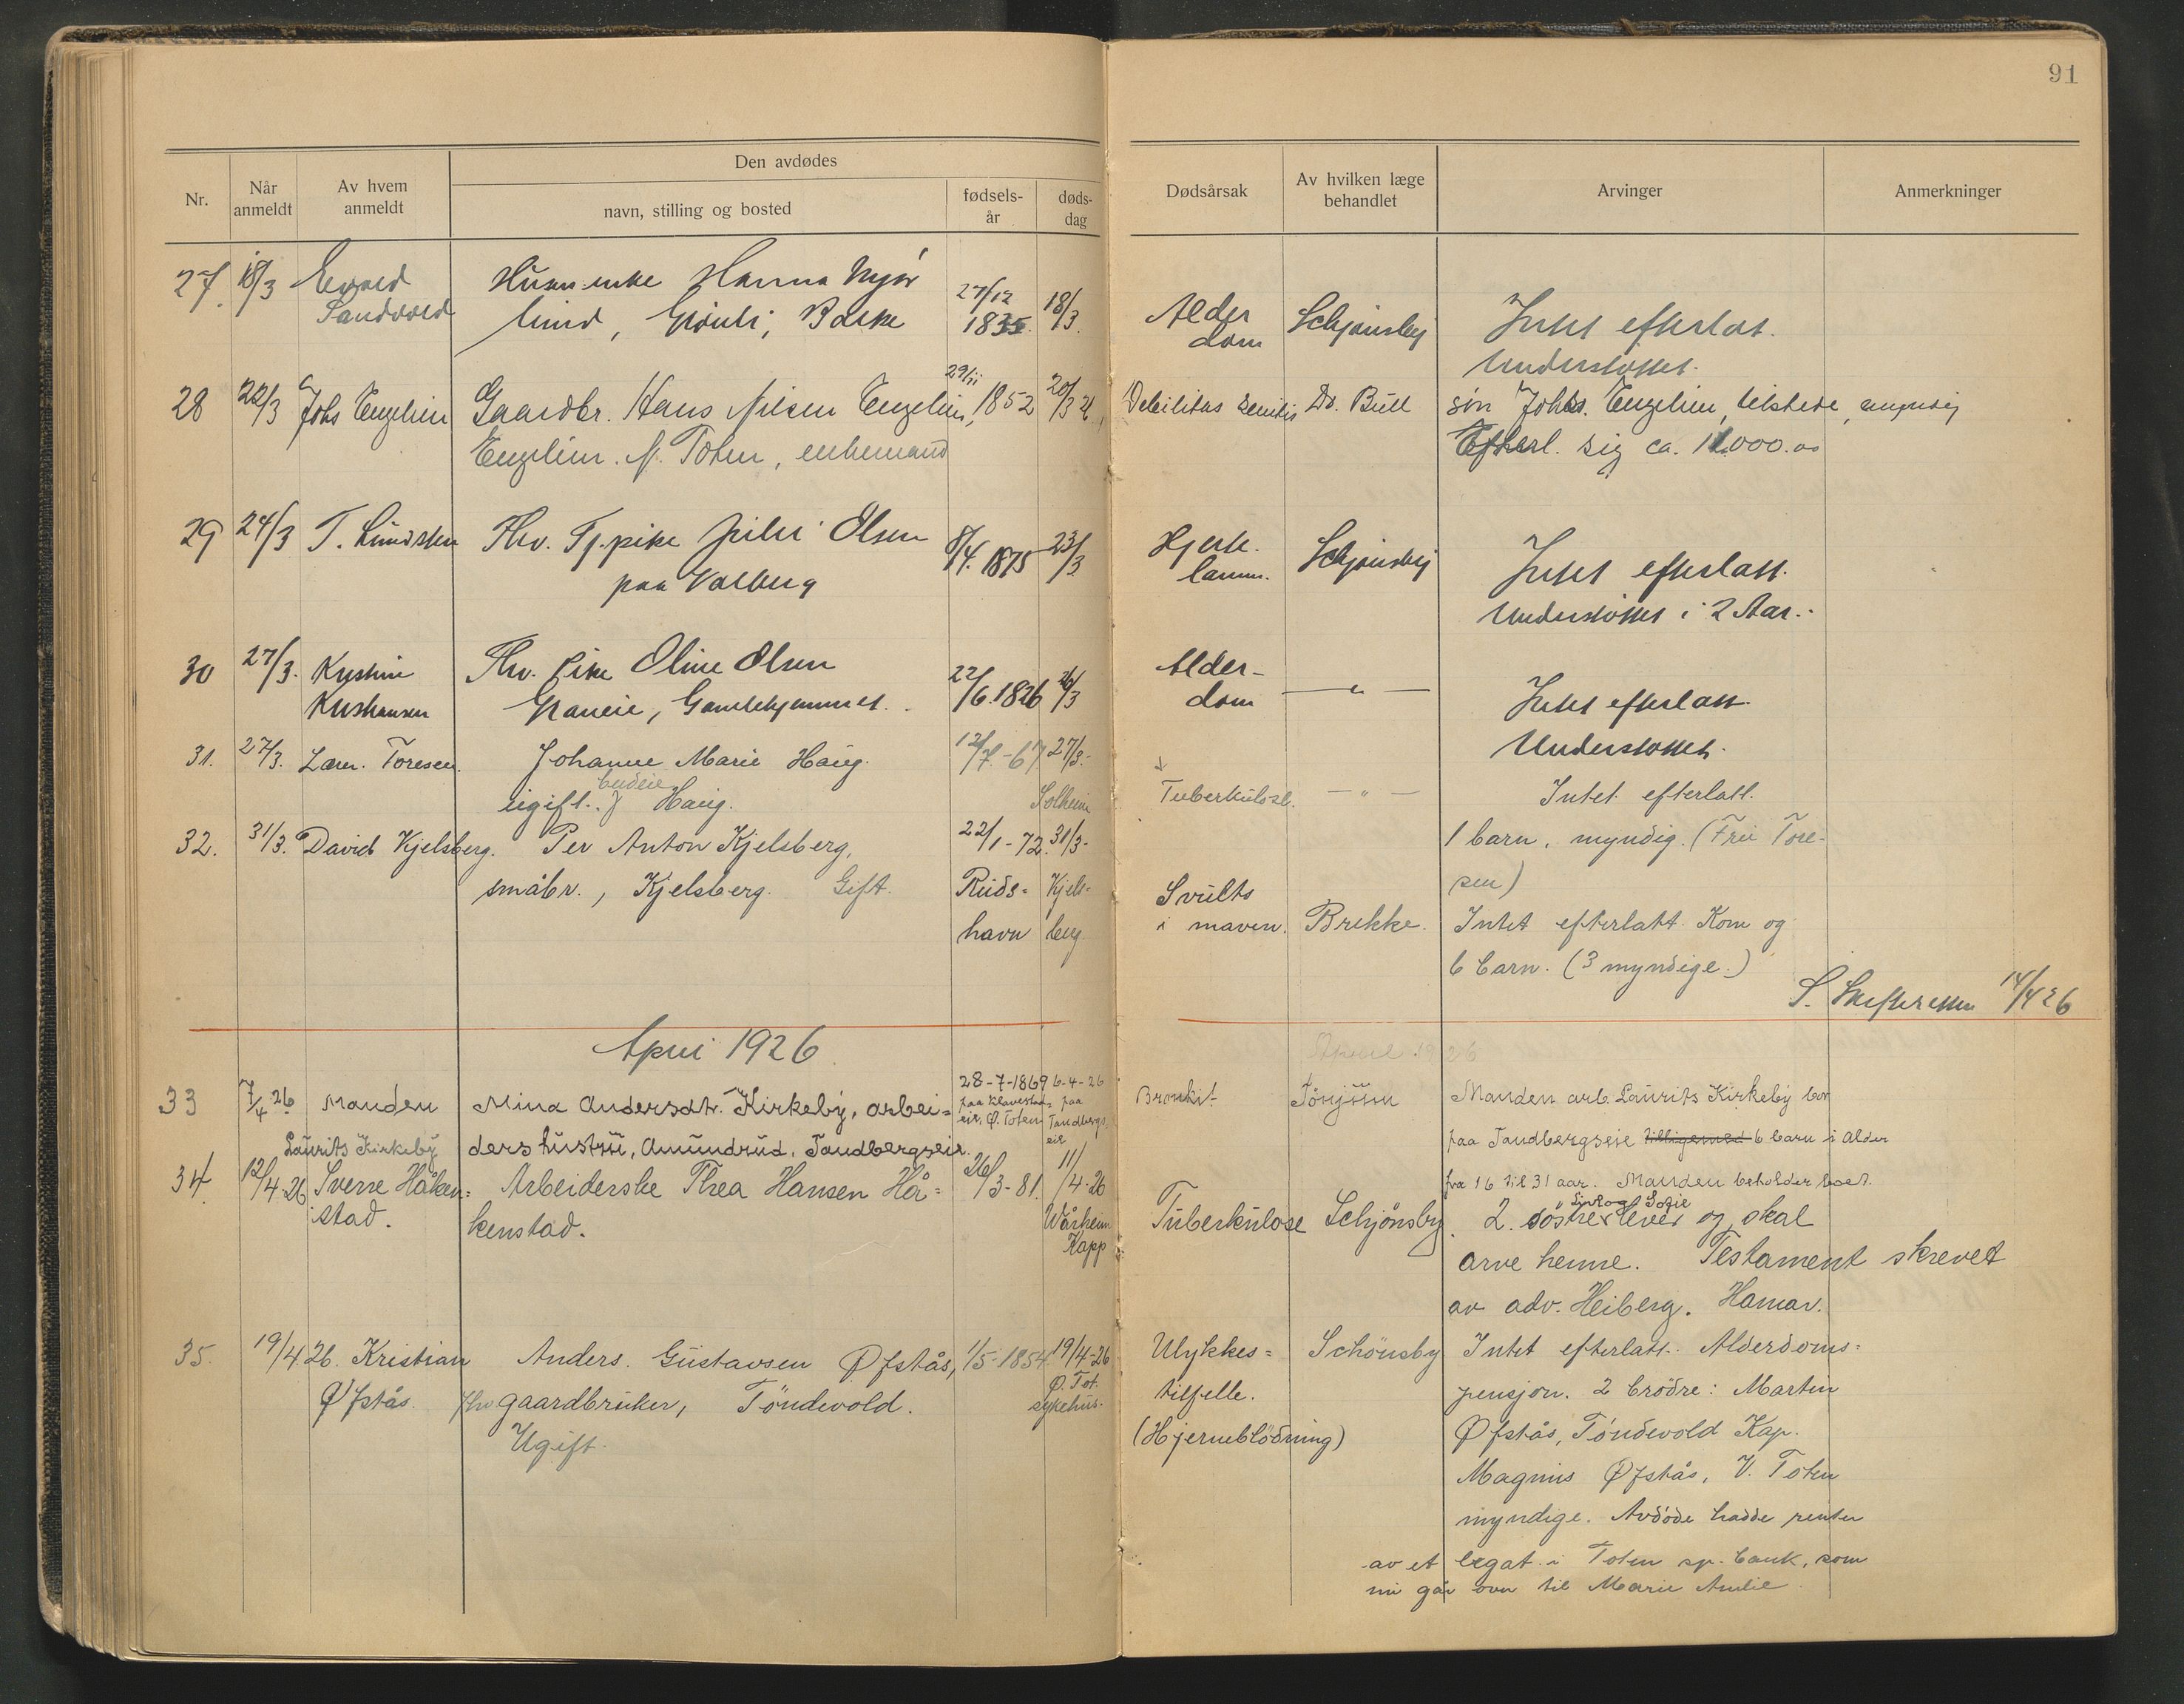 91
Nr.
Når anmeldt
Av hvem anmeldt
Den avdødes
navn, stilling og bosted
fødsels-år
døds-dag
Dødsårsak
Av hvilken læge behandlet
Arvinger
Anmerkninger
27. 18/3 Sandvold
Hanna
27/12 1835. 18/3.
Alder
dom
Schjønsby
Intet efterlat.
Understøttet.
28 22/3 Johs Engelien
Gaardbr. Hans Nilsen Engelien, 29/11 1852 20/3
Engelien. Ø. Toten, enkemand
Debilitas senilis Dr. Bull
søn Johs. Engelien, tilstede, myndig
Efterl. sig ca. 11.000.00
29 24/3 T. Lundsten
Fhv. Tj.pike Olsen
paa Valberg
8/4. 1875 23/3.
Hjerte-
lamm.
Schjønsby
Intet efterlatt.
Understøttet i 2 Aar.-
30 27/3. Kristine
Kristiansen
Fhv. pike Oline Olsen
Graneie, Gamlehjemmet.
22/6.1826 26/3
Alder-
dom
— " —
Intet efterlatt.
Understøttet.
31. 27/3. Laur. Toresen.
Johanne Marie Haug.
budeie
ugift. Haug.
12/7.-67. 27/3.-
Solheim
Tuberkulose.
— " —
Intet efterlatt.
1 barn, myndig. (Fru Tore-
sen)
32. 31/3. David Kjelsberg.
Per Anton Kjelsberg,
småbr., Kjelsberg. Gift.
22/1-72. 31/3-
Ruds=
havn
Kjels-
berg.
Svulst
i maven.
Brekke.
Intet efterlatt. Kom og
6 barn. (3 myndige.)
S. Skifteretten 14/4 26
April 1926
April 1926
33 7/4 26 Manden
Laurits Kirkeby
Mina Andersdtr. Kirkeby, arbei=
ders hustru, Amundrud, Tandbergseie.
28-7-1869
paa Klavestad=
eie, Ø. Toten
6-4-26
paa
Tandbergs.
eie
Bronkit.
Manden arb. Laurits Kirkeby bor
paa Tandbergseie tilligemed 6 barn i alder
fra 16 til 31 aar. Manden beholder boet.
34. 12/4-26 Sverre Håken=
stad.
Arbeiderske Thea Hansen Hå=
kenstad.
26/3-81. 11/4-26
Wårheim
Kapp
Tuberkulose
Schjönsby
og Sofie
2 søstre lever og skal
arve henne. Testament skrevet
av adv. Heiberg. Hamar.
35. 19/4.26. Kristian
Øfstås.
Anders Gustavsen Øfstås,
fhv. gaardbruker, Töndevold.
Ugift.
1/5-1854. 19/4-26
Ø. Tot.
sykehus.
Ulykkes=
tilfelle.
(Hjerneblödning)
Schönsby
Intet efterlatt. Alderdoms=
pensjon. 2 brödre: Martin
Øfstås, Töndevold Kap.
Magnus Øfstås, V. Toten
myndige. Avdöde hadde renter
av et legat i Toten sp. bank, som
nu går over til Marie Amlie.